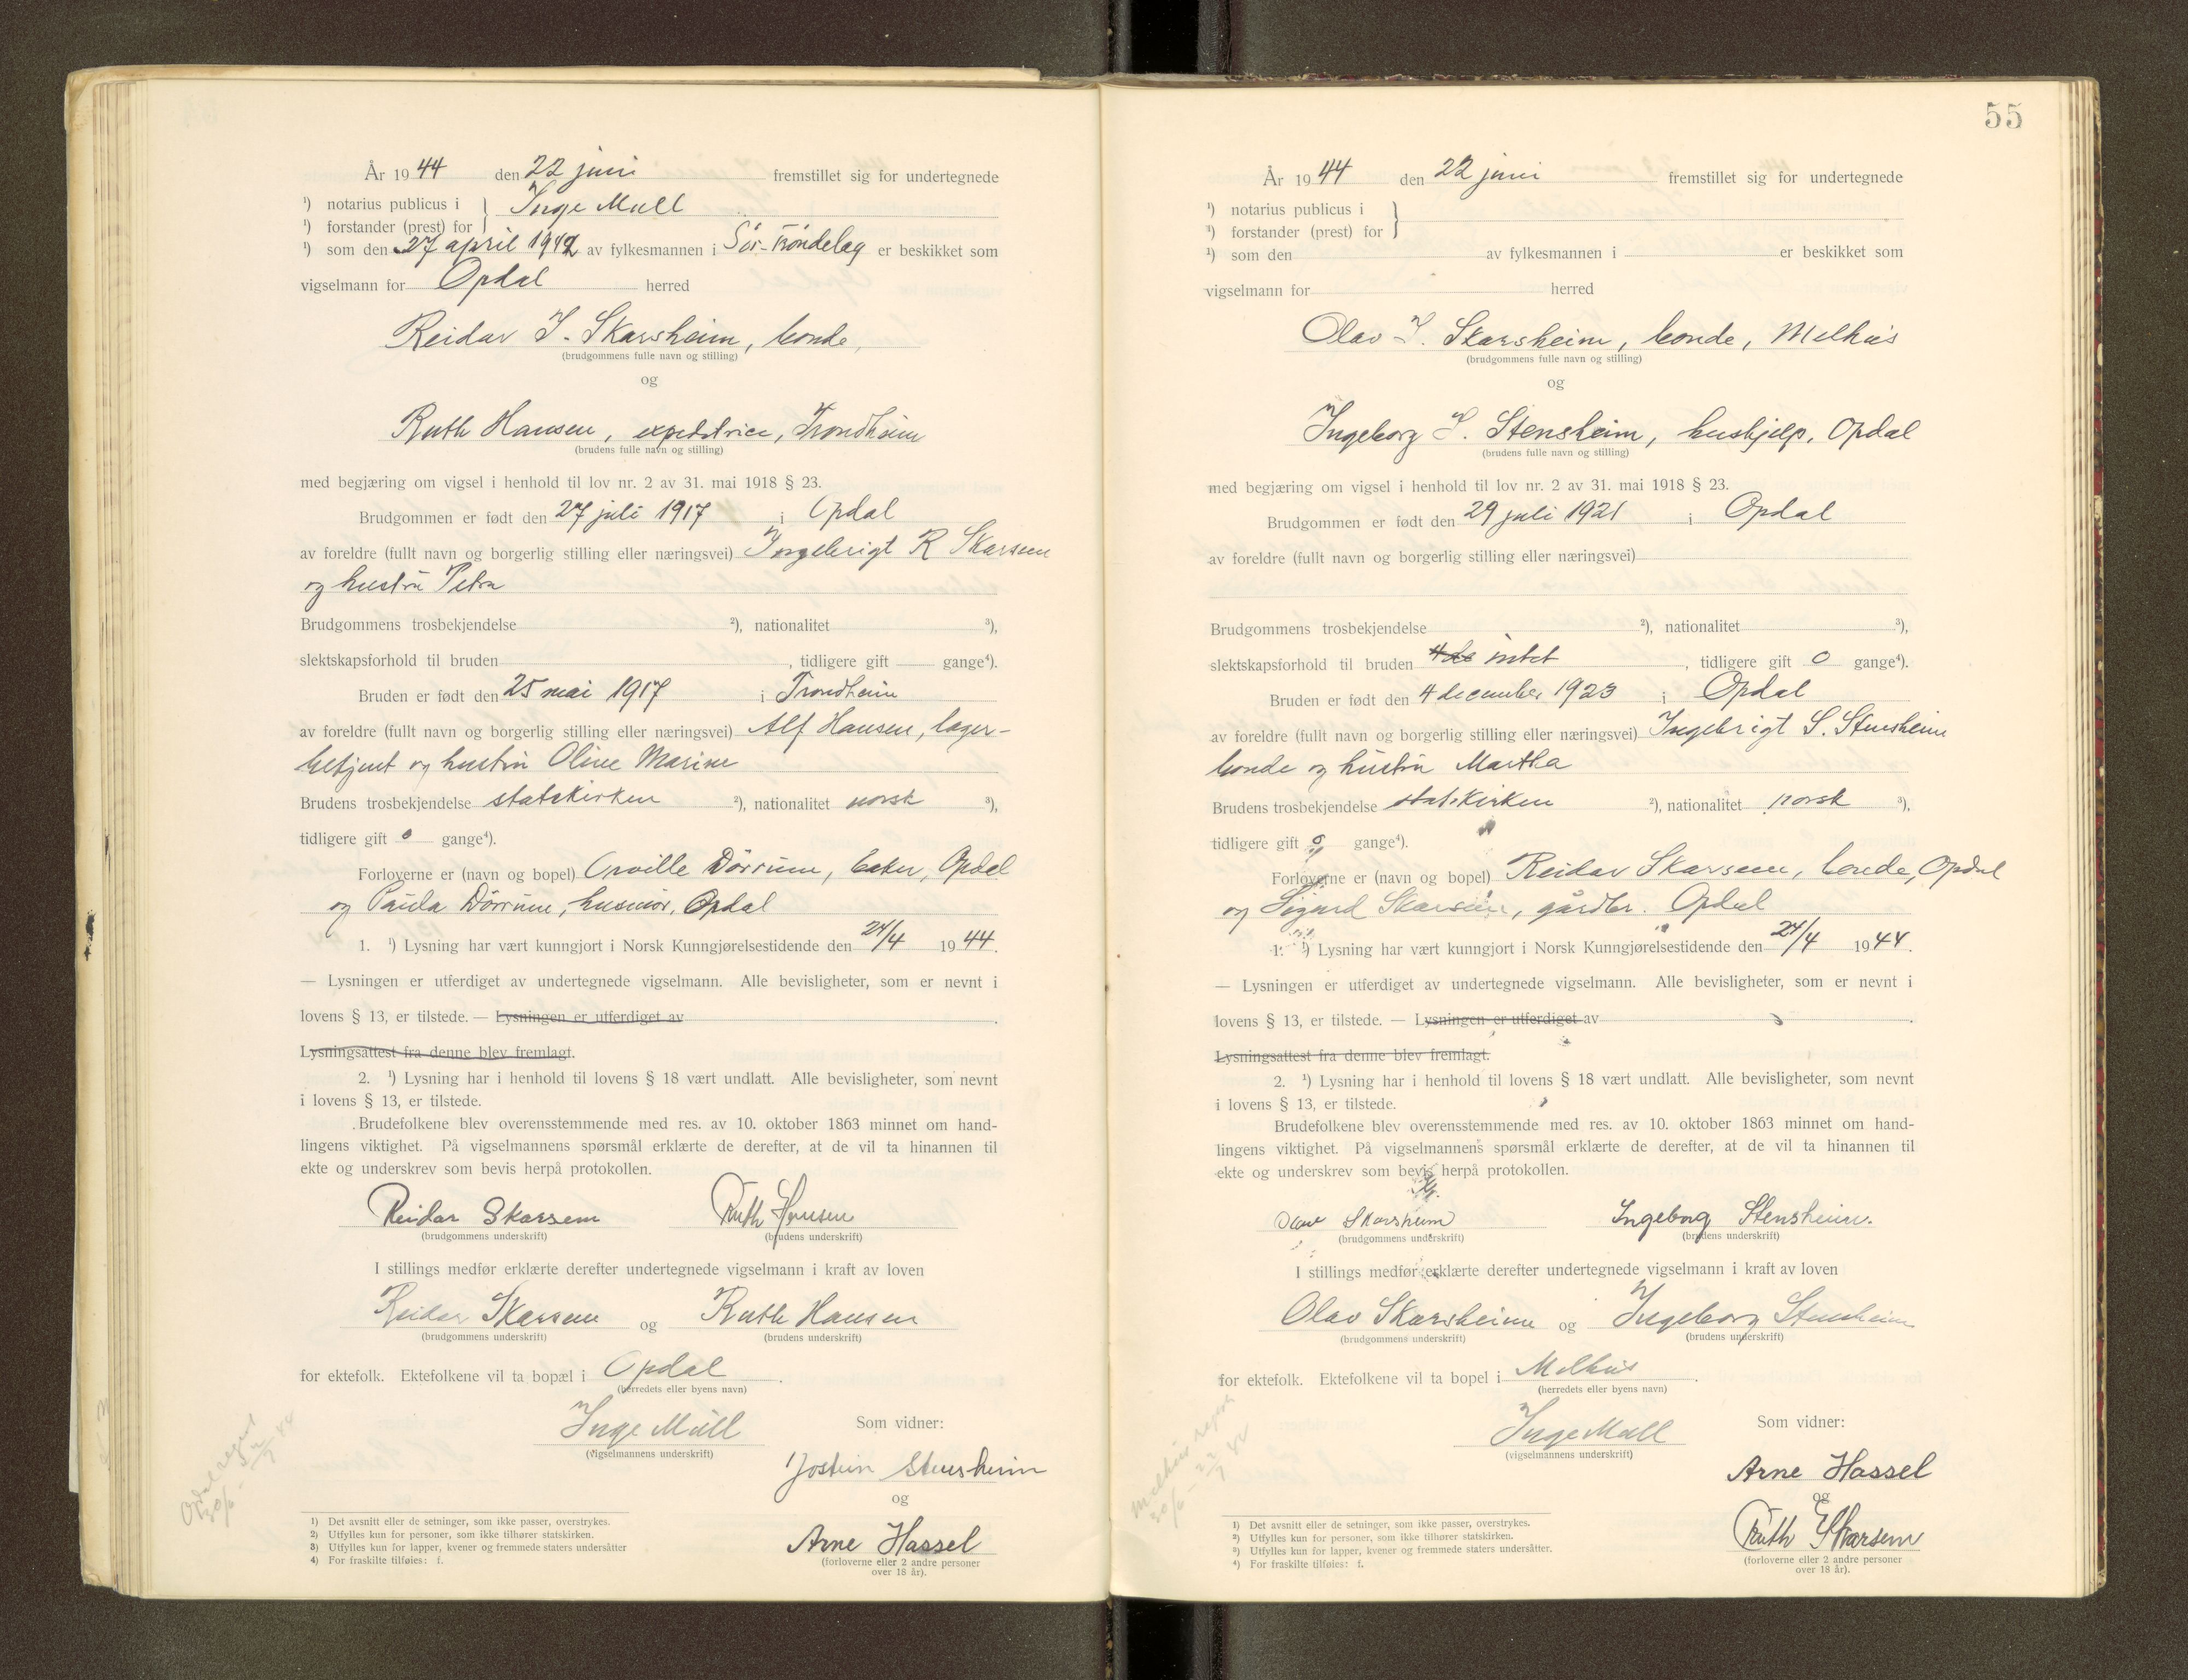 År 1944 den 22 juni fremstillet sig for undertegnede
¹) notarius publicus i } Inge Mull
¹) forstander (prest) for
¹) som den 27 april 1942 av fylkesmannen i Sör-Tröndelag er beskikket som
vigselmann for Opdal herred
Reidar I. Skarsheim, bonde,
(brudgommens fulle navn og stilling)
og
Ruth Hansen, expeditrice, Trondheim
(brudens fulle navn og stilling)
med begjæring om vigsel i henhold til lov nr. 2 av 31. mai 1918 § 23.
Brudgommen er født den 27 juli 1917 i Opdal
av foreldre (fullt navn og borgerlig stilling eller næringsvei) Ingebrigt R Skarsem
og hustru Petra
Brudgommens trosbekjendelse ²), nationalitet ³),
slektskapsforhold til bruden , tidligere gift gange⁴).
Bruden er født den 25 mai 1917 i Trondheim
av foreldre (fullt navn og borgerlig stilling eller næringsvei) Alf Hansen, lager-
betjent og hustru Oline Marine
Brudens trosbekjendelse statskirken ²), nationalitet norsk ³),
tidligere gift 0 gange⁴).
Forloverne er (navn og bopel) Orville Dörrum, baker, Opdal
og Paula Dörrum, husmor, Opdal
1. ¹) Lysning har vært kunngjort i Norsk Kunngjørelsestidende den 24/4 1944.
— Lysningen er utferdiget av undertegnede vigselmann. Alle bevisligheter, som er nevnt i
lovens § 13, er tilstede. — Lysningen er utferdiget av .
Lysningsattest fra denne blev fremlagt.
2. ¹) Lysning har i henhold til lovens § 18 vært undlatt. Alle bevisligheter, som nevnt
i lovens § 13, er tilstede.
Brudefolkene blev overensstemmende med res. av 10. oktober 1863 minnet om hand-
lingens viktighet. På vigselmannens spørsmål erklærte de derefter, at de vil ta hinannen til
ekte og underskrev som bevis herpå protokollen.
Reidar Skarsem Ruth Hansen
(brudgommens underskrift) (brudens underskrift)
I stillings medfør erklærte derefter undertegnede vigselmann i kraft av loven
Reidar Skarsem og Ruth Hansen
(brudgommens underskrift) (brudens underskrift)
for ektefolk. Ektefolkene vil ta bopæl i Opdal .
(herredets eller byens navn)
Inge Mull Som vidner:
(vigselmannens underskrift)
Jostein Stensheim
og
Arne Hassel
(forloverne eller 2 andre personer
over 18 år).
Opdal regist
30/6 - 2/7 44
1) Det avsnitt eller de setninger, som ikke passer, overstrykes.
2) Utfylles kun for personer, som ikke tilhører statskirken.
3) Utfylles kun for lapper, kvener og fremmede staters undersåtter
4) For fraskilte tilføies: f.
55
År 1944 den 22 juni fremstillet sig for undertegnede
¹) notarius publicus i }
¹) forstander (prest) for
¹) som den av fylkesmannen i er beskikket som
vigselmann for herred
Olav I. Skarsheim, bonde, Melhus
(brudgommens fulle navn og stilling)
og
Ingeborg I. Stensheim, hushjelp, Opdal
(brudens fulle navn og stilling)
med begjæring om vigsel i henhold til lov nr. 2 av 31. mai 1918 § 23.
Brudgommen er født den 29 juli 1921 i Opdal
av foreldre (fullt navn og borgerlig stilling eller næringsvei)
Brudgommens trosbekjendelse ²), nationalitet ³),
slektskapsforhold til bruden 4de intet , tidligere gift 0 gange⁴).
Bruden er født den 4 december 1923 i Opdal
av foreldre (fullt navn og borgerlig stilling eller næringsvei) Ingebrigt S. Stensheim
bonde og hustru Martha
Brudens trosbekjendelse statskirken ²), nationalitet norsk ³),
tidligere gift 0 gange⁴).
Forloverne er (navn og bopel) Reidar Skarsem, bonde, Opdal
og Sigurd Skarsem, gårdbr. Opdal
1. ¹) Lysning har vært kunngjort i Norsk Kunngjørelsestidende den 24/4 1944.
— Lysningen er utferdiget av undertegnede vigselmann. Alle bevisligheter, som er nevnt i
lovens § 13, er tilstede. — Lysningen er utferdiget av .
Lysningsattest fra denne blev fremlagt.
2. ¹) Lysning har i henhold til lovens § 18 vært undlatt. Alle bevisligheter, som nevnt
i lovens § 13, er tilstede.
Brudefolkene blev overensstemmende med res. av 10. oktober 1863 minnet om hand-
lingens viktighet. På vigselmannens spørsmål erklærte de derefter, at de vil ta hinannen til
ekte og underskrev som bevis herpå protokollen.
Olav Skarsheim Ingeborg Stensheim.
(brudgommens underskrift) (brudens underskrift)
I stillings medfør erklærte derefter undertegnede vigselmann i kraft av loven
Olav Skarsheim og Ingeborg Stensheim
(brudgommens underskrift) (brudens underskrift)
for ektefolk. Ektefolkene vil ta bopel i Melhus .
(herredets eller byens navn)
Inge Mull Som vidner:
(vigselmannens underskrift)
Arne Hassel
og
Ruth Skarsem
(forloverne eller 2 andre personer
over 18 år).
Melhus regist
30/6 - 2/7 44
1) Det avsnitt eller de setninger, som ikke passer, overstrykes.
2) Utfylles kun for personer, som ikke tilhører statskirken.
3) Utfylles kun for lapper, kvener og fremmede staters undersåtter.
4) For fraskilte tilføies: f.